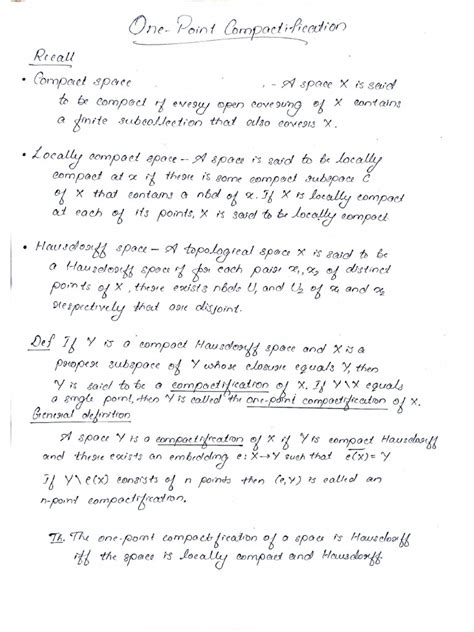 One-Point Compactification
Recall
• Compact space - A space X is said
to be compact if every open covering of X contains
a finite subcollection that also covers X.
• Locally compact space - A space is said to be locally
compact at x if there is some compact subspace C
of X that contains a nbd of x. If X is locally compact
at each of its points, X is said to be locally compact
• Hausdorff space - A topological space X is said to be
a Hausdorff space if for each pair x₁, x₂ of distinct
points of X, there exists nbds U₁ and U₂ of x₁ and x₂
respectively that are disjoint.
Def If Y is a compact Hausdorff space and X is a
proper subspace of Y whose closure equals Y, then
Y is said to be a compactification of X. If Y\X equals
a single point, then Y is called the one-point compactification of X.
General definition
A space Y is a compactification of X if Y is compact Hausdorff
and there exists an embedding e: X→Y such that e̅(̅x̅)̅ = Y
If Y\e(x) consists of n points then (e,Y) is called an
n-point compactification.
Th. The one-point compactification of a space is Hausdorff
iff the space is locally compact and Hausdorff